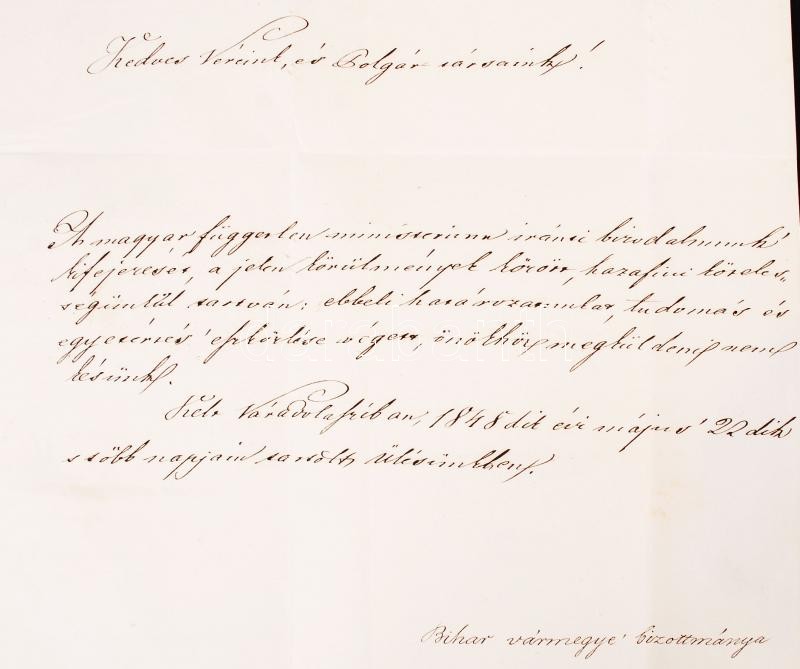 Kedves Véreink, és Polgár társaink!
A magyar független ministerium iránti bizodalmunk'
kifejezését, a jelen körülmények között, hazafiui köteles-
ségünkül tartván: ebbeli határozatunkat, tudomás és
egyetértés' eszközlése végett, önökhöz megküldeni nem
késünk.
Kelt Váradolasziban, 1848dik évi május' 22dik
s több napjain tartott Ülésünkben.
Bihar vármegye' bizottmánya